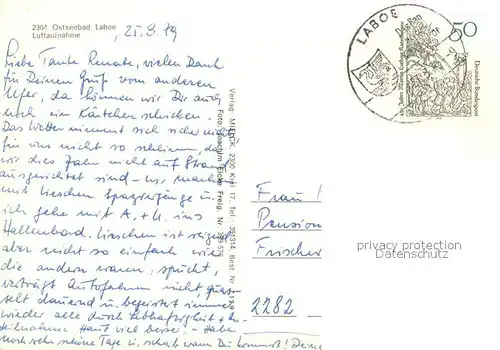 2304 Ostseebad Laboe
Luftaufnahme
25.9.79
Liebe Tante Renate, vielen Dank
für Deinen Gruß vom anderen
Ufer, da können wir Dir auch
noch ein Kärtchen schicken.
Das Wetter nimmt sich sicher nicht
für uns nicht so schlimm, da
wir dies Jahr nicht auf Strand
ausgerichtet sind - wir machen
mit Lieschen Spaziergänge u.
ich gehe mit A. + U. ins
Hallenbad. Lieschen ist
aber nicht so einfach wie
die anderen waren, spuckt,
verträgt Autofahren nicht
selt dauernd u. begeistert immer
wieder alle durch Lebhaftigkeit + An-
teilnahme. Haut viel besser! - Habe
noch sehr schöne Tage u. schreib wann Du kommst! Deine
Verlag MIELCK, 2300 Kiel 17, Tel. 391314, Best. Nr.
Foto: Joachim Eicke Freig. Nr.
LABOE
50
Deutsche Bundespost
Frau
Pension
Frischer
2282
privacy protection
Datenschutz